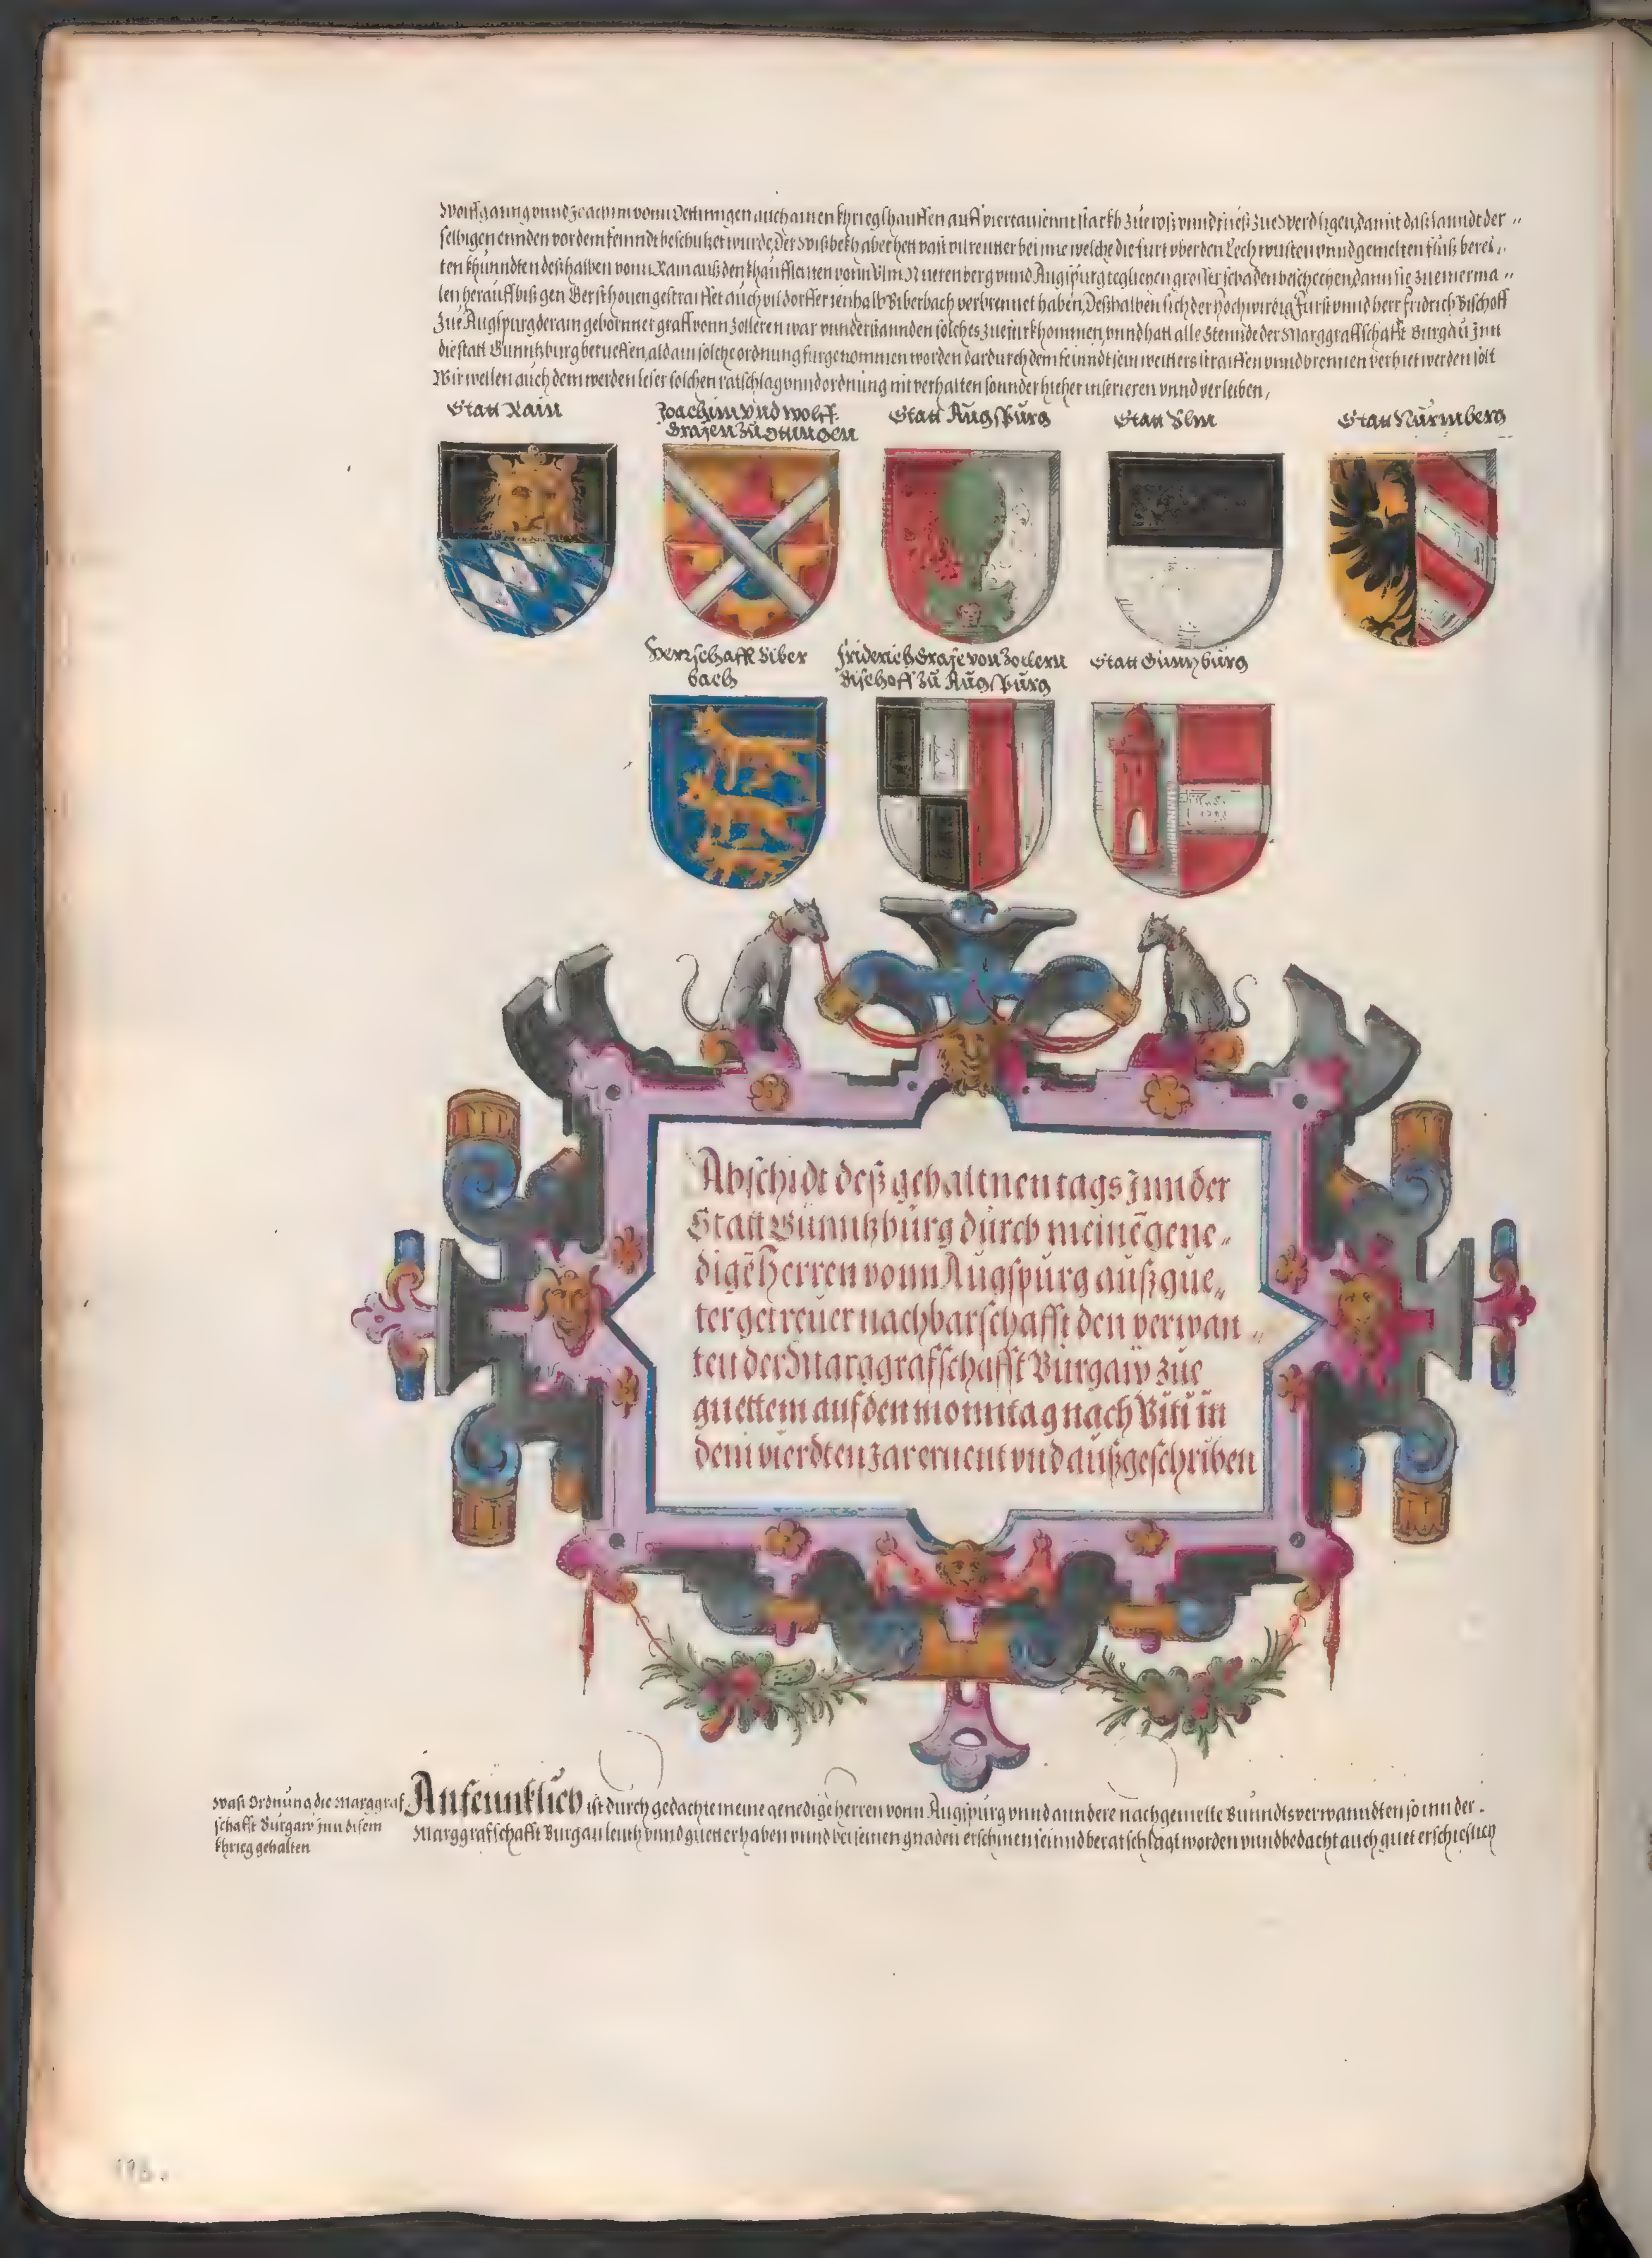 Wolffganng vnnd Joachim vonn Oettinngen auch ainen khriegshauffen auff viertausennt starkh zue roß vnnd fueß zue Werdligen, damit daß lanndt der„
selbigen ennden vor dem feinndt beschutzet wurde, Der Wißbekh aber hett vast vil reutter bei ime welche die furt vber den Lech wusten vnnd gemelten fluß berei„
ten khunndten deßhalben vonn Rain auß den khauffleuten vonn Vlm Nuerenberg vnnd Augspurg teglichen grosser schaden beschechen, dann sie zue merma„
len herauff biß gen Gersthouen gestraiffet auch vil dorffer ienhalb Biberbach verbrennet haben, Deßhalben sich der Hochwirdig Furst vnnd herr Fridrich Bischoff
zue Augspurg der ain geborner graff vonn Zolleren war vnderstannden solches zuefurkhommen, vnnd hatt alle Stennde der Marggraffschafft Burgau Jnn
die statt Günntzburg berueffen, alda in solche ordnung furgenommen worden dardurch dem feinndt sein weitters straiffen vnnd brennen verhiet werden solt
Wir wellen auch dem werden leser solchen ratschlag vnnd ordnung nit verhalten sounder hieher inserieren vnnd verleiben,
Statt Rain
Joachim vnd Wolff
Grafen zu Ottingen
Statt Augspurg
Statt Vlm
Statt Nürmberg
Herrschafft Biber
bach
Friderich Grafe von Zollern
Bischoff zu Augspurg
Statt Günzburg
Abschidt deß gehaltnen tags Jnn der
Statt Günntzburg durch meinē gene„
digē Herren vonn Augspurg auß gue„
ter getreuer nachbarschafft den verwan„
ten der Marggrafschafft Burgaw zue
guettem auf den monntag nach Viti in
dem vierdten Jar ernent vnd außgeschriben
Waß Ordnung die Marggraf
schafft Burgaw Jnn disem
khrieg gehalten
Anfennklich ist durch gedachte meine genedige herren vonn Augspurg vnnd anndere nachgemelte Bunndtsverwanndten so inn der.
Marggrafschafft Burgau leuth vnnd guetter haben vnnd bei seinen gnaden erschinen seinnd beratschlagt worden vnnd bedacht auch guet erschieslich